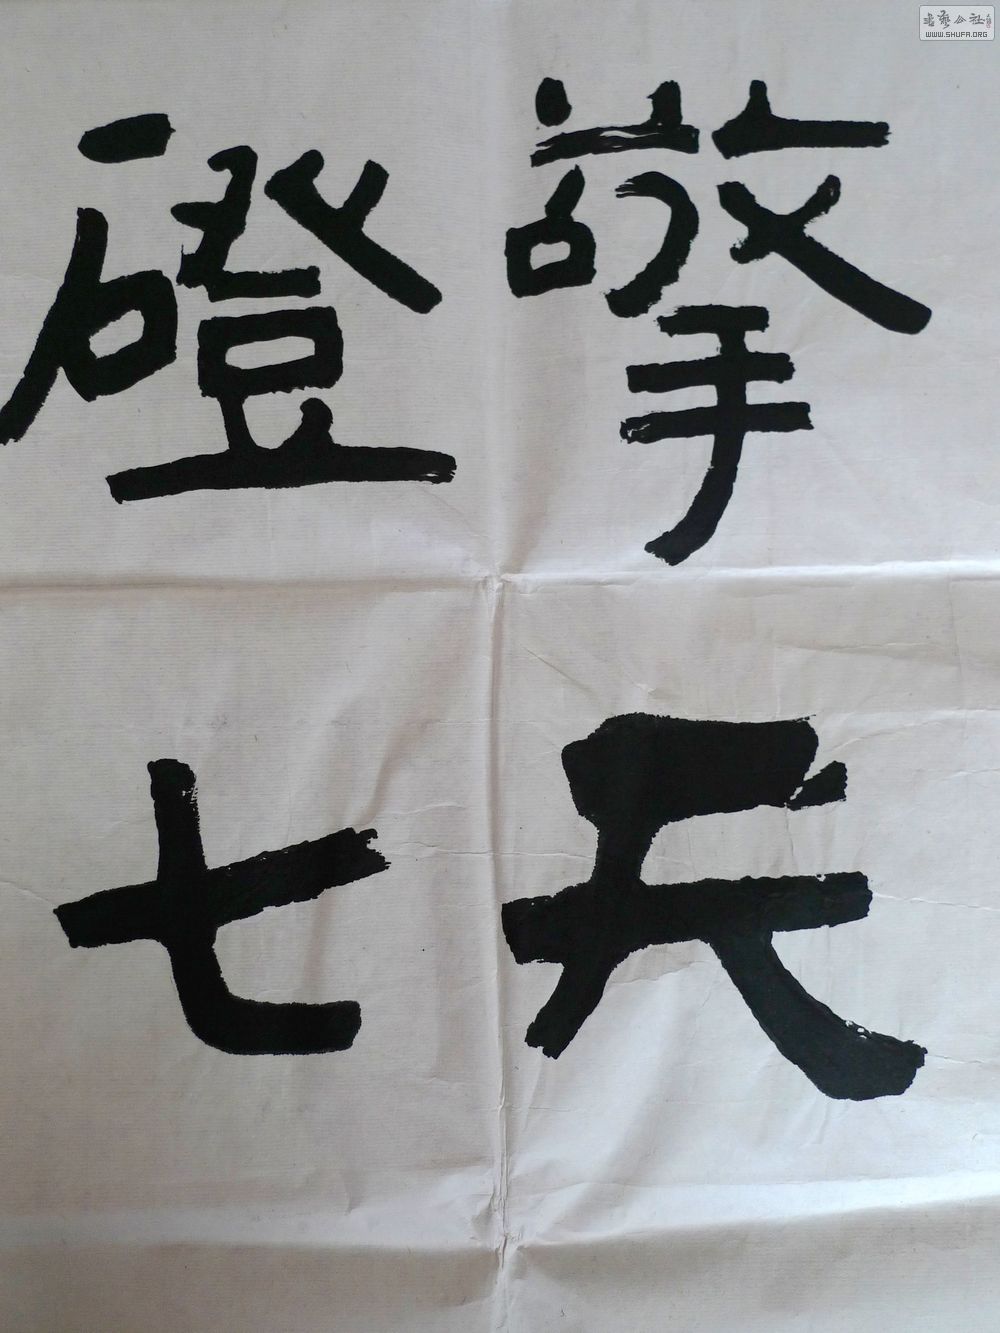 擎天
磴七
書藝公社
WWW.SHUFA.ORG